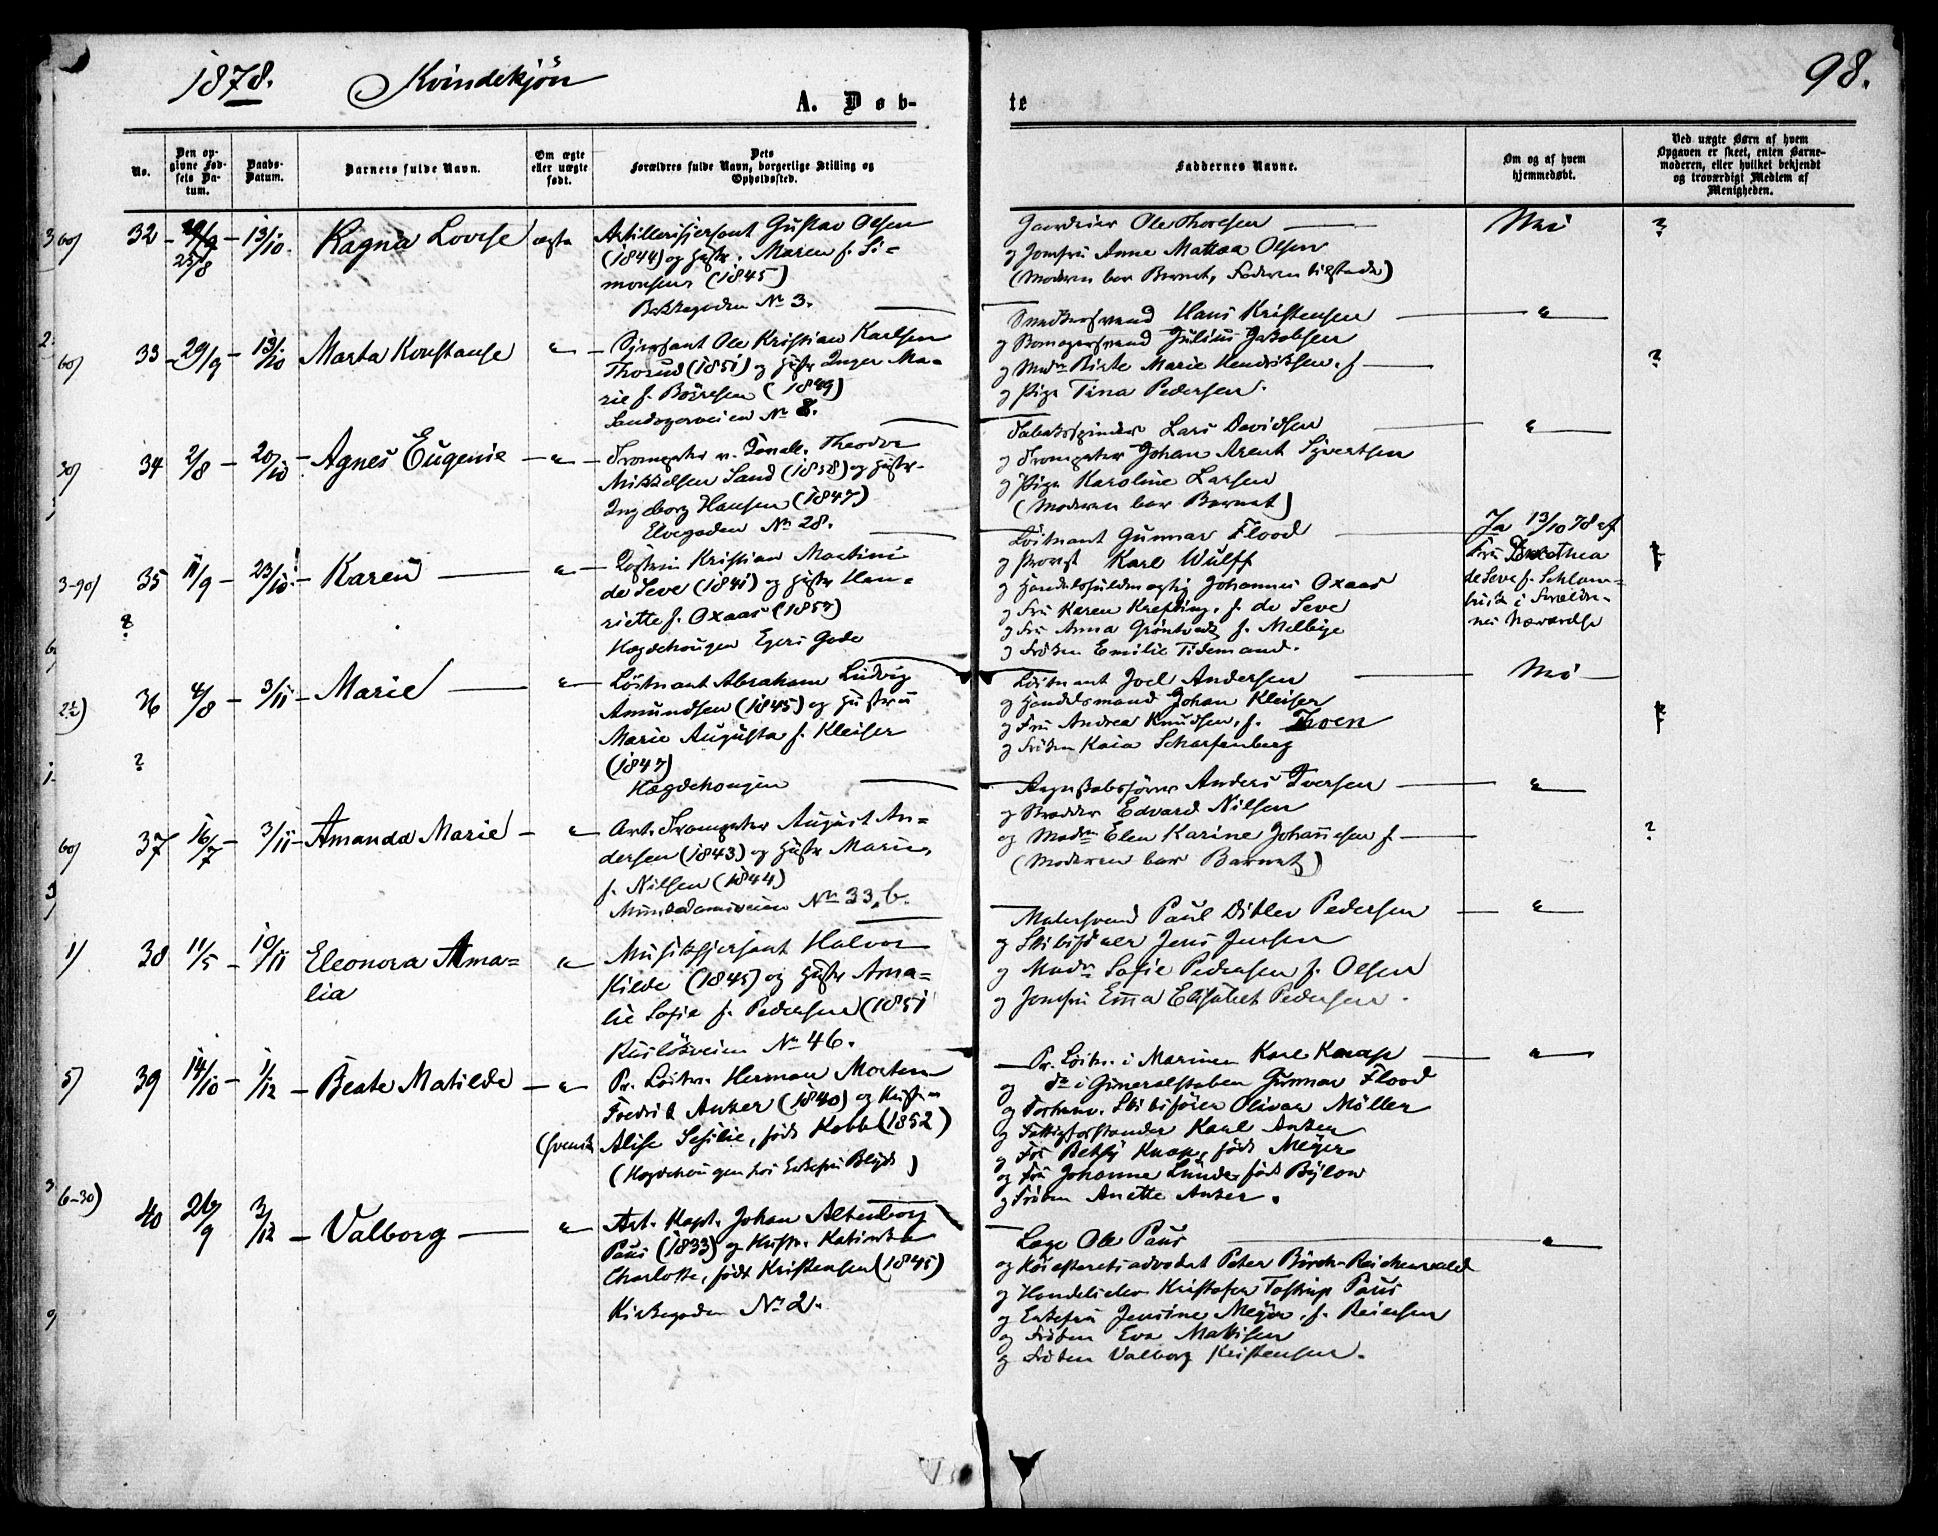 1878. Kvindekjön
98.
A. Døb-
te
No.
Den op-
givne Fød-
sels Da-
tum.
Daabs-
Datum.
Barnets fulde Navn.
Om ægte
eller uægte
født.
Dets
Forældres fulde Navn, borgerlige Stilling og
Opholdssted.
Faddernes Navne.
Om og af hvem
hjemmedøbt.
Ved uægte Børn af hvem
Opgaven er skeet, enten Barne-
moderen, eller hvilket bekjendt
og troværdigt Medlem af
Menigheden.
32 25/8 13/10. Ragna Lovise ægte
Artillerisjersant Gustav Olsen
(1844) og Hustr. Maren f. Si-
monsen (1845)
Bakkegaden No 3.
Ole Thoresen
og Jomfru Anne Mattea Olsen
(Moderen bar Barnet, Faderen tilstede)
Nei
?
33 29/9 13/10 Marta Konstanse "
Sjersant Ole Kristian Karlsen
Thorud (1851) og Hustr Inger Ma-
rie f. Börresen (1849)
No 8.
Snedkersvend Hans Kristensen "
og Julius Jakobsen
og Madm Birte Marie Hendriksen. f ?
og Pige Tina Pedersen.
34 2/8 20/10 Agnes Eugenie "
Trompeter v. Theodor
Mikkelsen Sand (1838) og Hustr.
Ingeborg Hansen (1847)
Elvegaden No 28.
Tobakspinder Lars Davidsen "
og Trompeter Johan Arent Sivertsen
og Pige Karoline Larsen
(Moderen bar Barnet)
35 11/9 23/10! Karen "
Kristian Martini
de Seve (1841) og Hustr Hen-
riette f. Oxaas (1857)
Hægdehougen Egers Gade
Löitnant Gunnar Flood
og Provst Karl Wulff
og Handelsfuldmægtig Johannes Oxaas
og Fru Karen Krefting. f. de Seve
og Fru Anna Gröntvedt f. Melbye
og Fröken Emilie Tidemand.
Ja 13/10 78 af
Fru Dorothea
de Seve f.
i Foreldre-
nes Nærværelse
?
36 4/8 3/11 Marie "
Löitnant Abraham Ludvig
Amundsen (1845) og Hustru
Marie Augusta f. Kleiser
(1847)
Hægdehougen
Löitnant Joel Andersen
og Handelsmand Johan Kleiser
og Fru Andrea Knudsen. f. Thoen
og Fröken Kaia Scharfenberg
Nei
?
37 16/7 3/11 Amanda Marie "
Art. Trompeter August An-
dersen (1843) og Hustr Marie,
f. Nilsen (1844)
Munkedamsveien No 33,b.
Regnskabsförer Anders Iversen "
og Skrædder Edvard Nilsen
og Madm Elen Karine Johannesen f. ?
(Moderen bar Barnet)
38 11/5 10/11 Eleonora Ama-
lia "
Musiksjersant Halvor
Kilde (1845) og Hustr Ama-
lie Sofie f. Pedersen (1851
Ruslökveien No 46.
Malersvend Paul Ditlev Pedersen "
og Jens Jensen
og Madm Sofie Pedersen f. Olsen
og Jomfru Emma Elisabet Pedersen.
39 14/10 1/12 Beate Matilde "
(svensk
Pr. Löitn. Herman Morten
Fredrik Anker (1840) og Hustru
Alise Sesilie, født Kobb (1852)
(Hægdehougen hos Enkefru Blyth)
Pr. Löitn. i Marinen Karl Knap "
og do i Generalstaben Gunnar Flood
og Forhenv. Skibsförer Olivar Möller
og Fattigforstander Karl Anker
og Fru Betsy Knap, född Meyer
og Fru Johanne Lunde, född Bylow
og Fröken Anette Anker.
40 26/9 3/12 Valborg "
Art. Kapt. Johan Altenborg
Paus (1833) og Hustr. Katinka
Charlotte, född Kristensen (1845)
Kirkegaden No 2.
Læge Ole Paus "
og Höiesteretsadvokat Peter Birch-Reichenwald
og Kristofer Tostrup Paus
og Enkefru Jensine Meyer. f. Reiersen
og Fröken Eva Mathisen
og Fröken Valborg Kristensen.